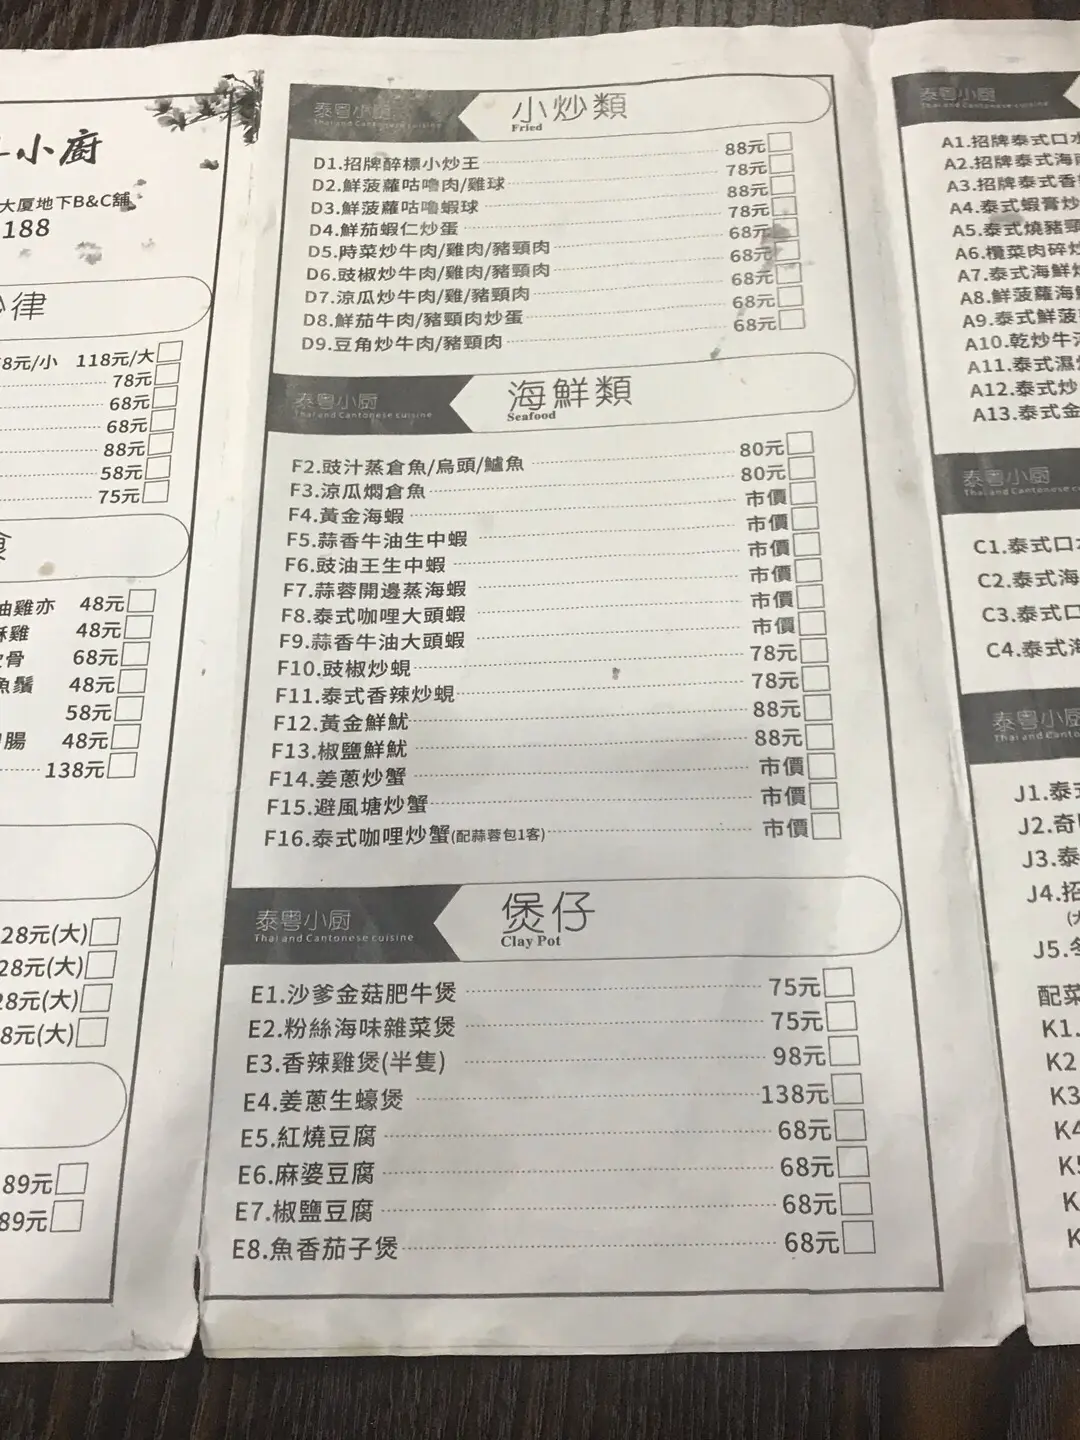 小廚
大厦地下B&C舖
188
律
8元/小 118元/大
78元
68元
68元
88元
58元
75元
48元
雞 48元
骨 68元
魚鬚 48元
58元
腸 48元
138元
28元(大)
28元(大)
28元(大)
8元(大)
89元
89元
泰粵小厨
Thai and Cantonese cuisine
小炒類
Fried
D1.招牌醉標小炒王 88元
D2.鮮菠蘿咕嚕肉/雞球 78元
D3.鮮菠蘿咕嚕蝦球 88元
D4.鮮茄蝦仁炒蛋 78元
D5.時菜炒牛肉/雞肉/豬頸肉 68元
D6.豉椒炒牛肉/雞肉/豬頸肉 68元
D7.涼瓜炒牛肉/雞/豬頸肉 68元
D8.鮮茄牛肉/豬頸肉炒蛋 68元
D9.豆角炒牛肉/豬頸肉 68元
泰粵小厨
Thai and Cantonese cuisine
海鮮類
Seafood
F2.豉汁蒸倉魚/烏頭/鱸魚 80元
F3.涼瓜燜倉魚 80元
F4.黃金海蝦 市價
F5.蒜香牛油生中蝦 市價
F6.豉油王生中蝦 市價
F7.蒜蓉開邊蒸海蝦 市價
F8.泰式咖哩大頭蝦 市價
F9.蒜香牛油大頭蝦 市價
F10.豉椒炒蜆 78元
F11.泰式香辣炒蜆 78元
F12.黃金鮮魷 88元
F13.椒鹽鮮魷 88元
F14.姜蔥炒蟹 市價
F15.避風塘炒蟹 市價
F16.泰式咖哩炒蟹(配蒜蓉包1客) 市價
泰粵小厨
Thai and Cantonese cuisine
煲仔
Clay Pot
E1.沙爹金菇肥牛煲 75元
E2.粉絲海味雜菜煲 75元
E3.香辣雞煲(半隻) 98元
E4.姜蔥生蠔煲 138元
E5.紅燒豆腐 68元
E6.麻婆豆腐 68元
E7.椒鹽豆腐 68元
E8.魚香茄子煲 68元
泰粵小厨
Thai and Cantonese cuisine
A1.招牌泰式口水
A2.招牌泰式海南
A3.招牌泰式香
A4.泰式蝦膏炒
A5.泰式燒豬頸
A6.欖菜肉碎炒
A7.泰式海鮮炒
A8.鮮菠蘿海鮮
A9.泰式鮮菠
A10.乾炒牛河
A11.泰式濕炒
A12.泰式炒
A13.泰式金
泰粵小厨
Thai and Cantonese
C1.泰式口水
C2.泰式海
C3.泰式口
C4.泰式海
泰粵小厨
Thai and Cantonese
J1.泰式
J2.奇
J3.泰
J4.招
J5.冬
配菜
K1.
K2
K3
K4
K5
K
K